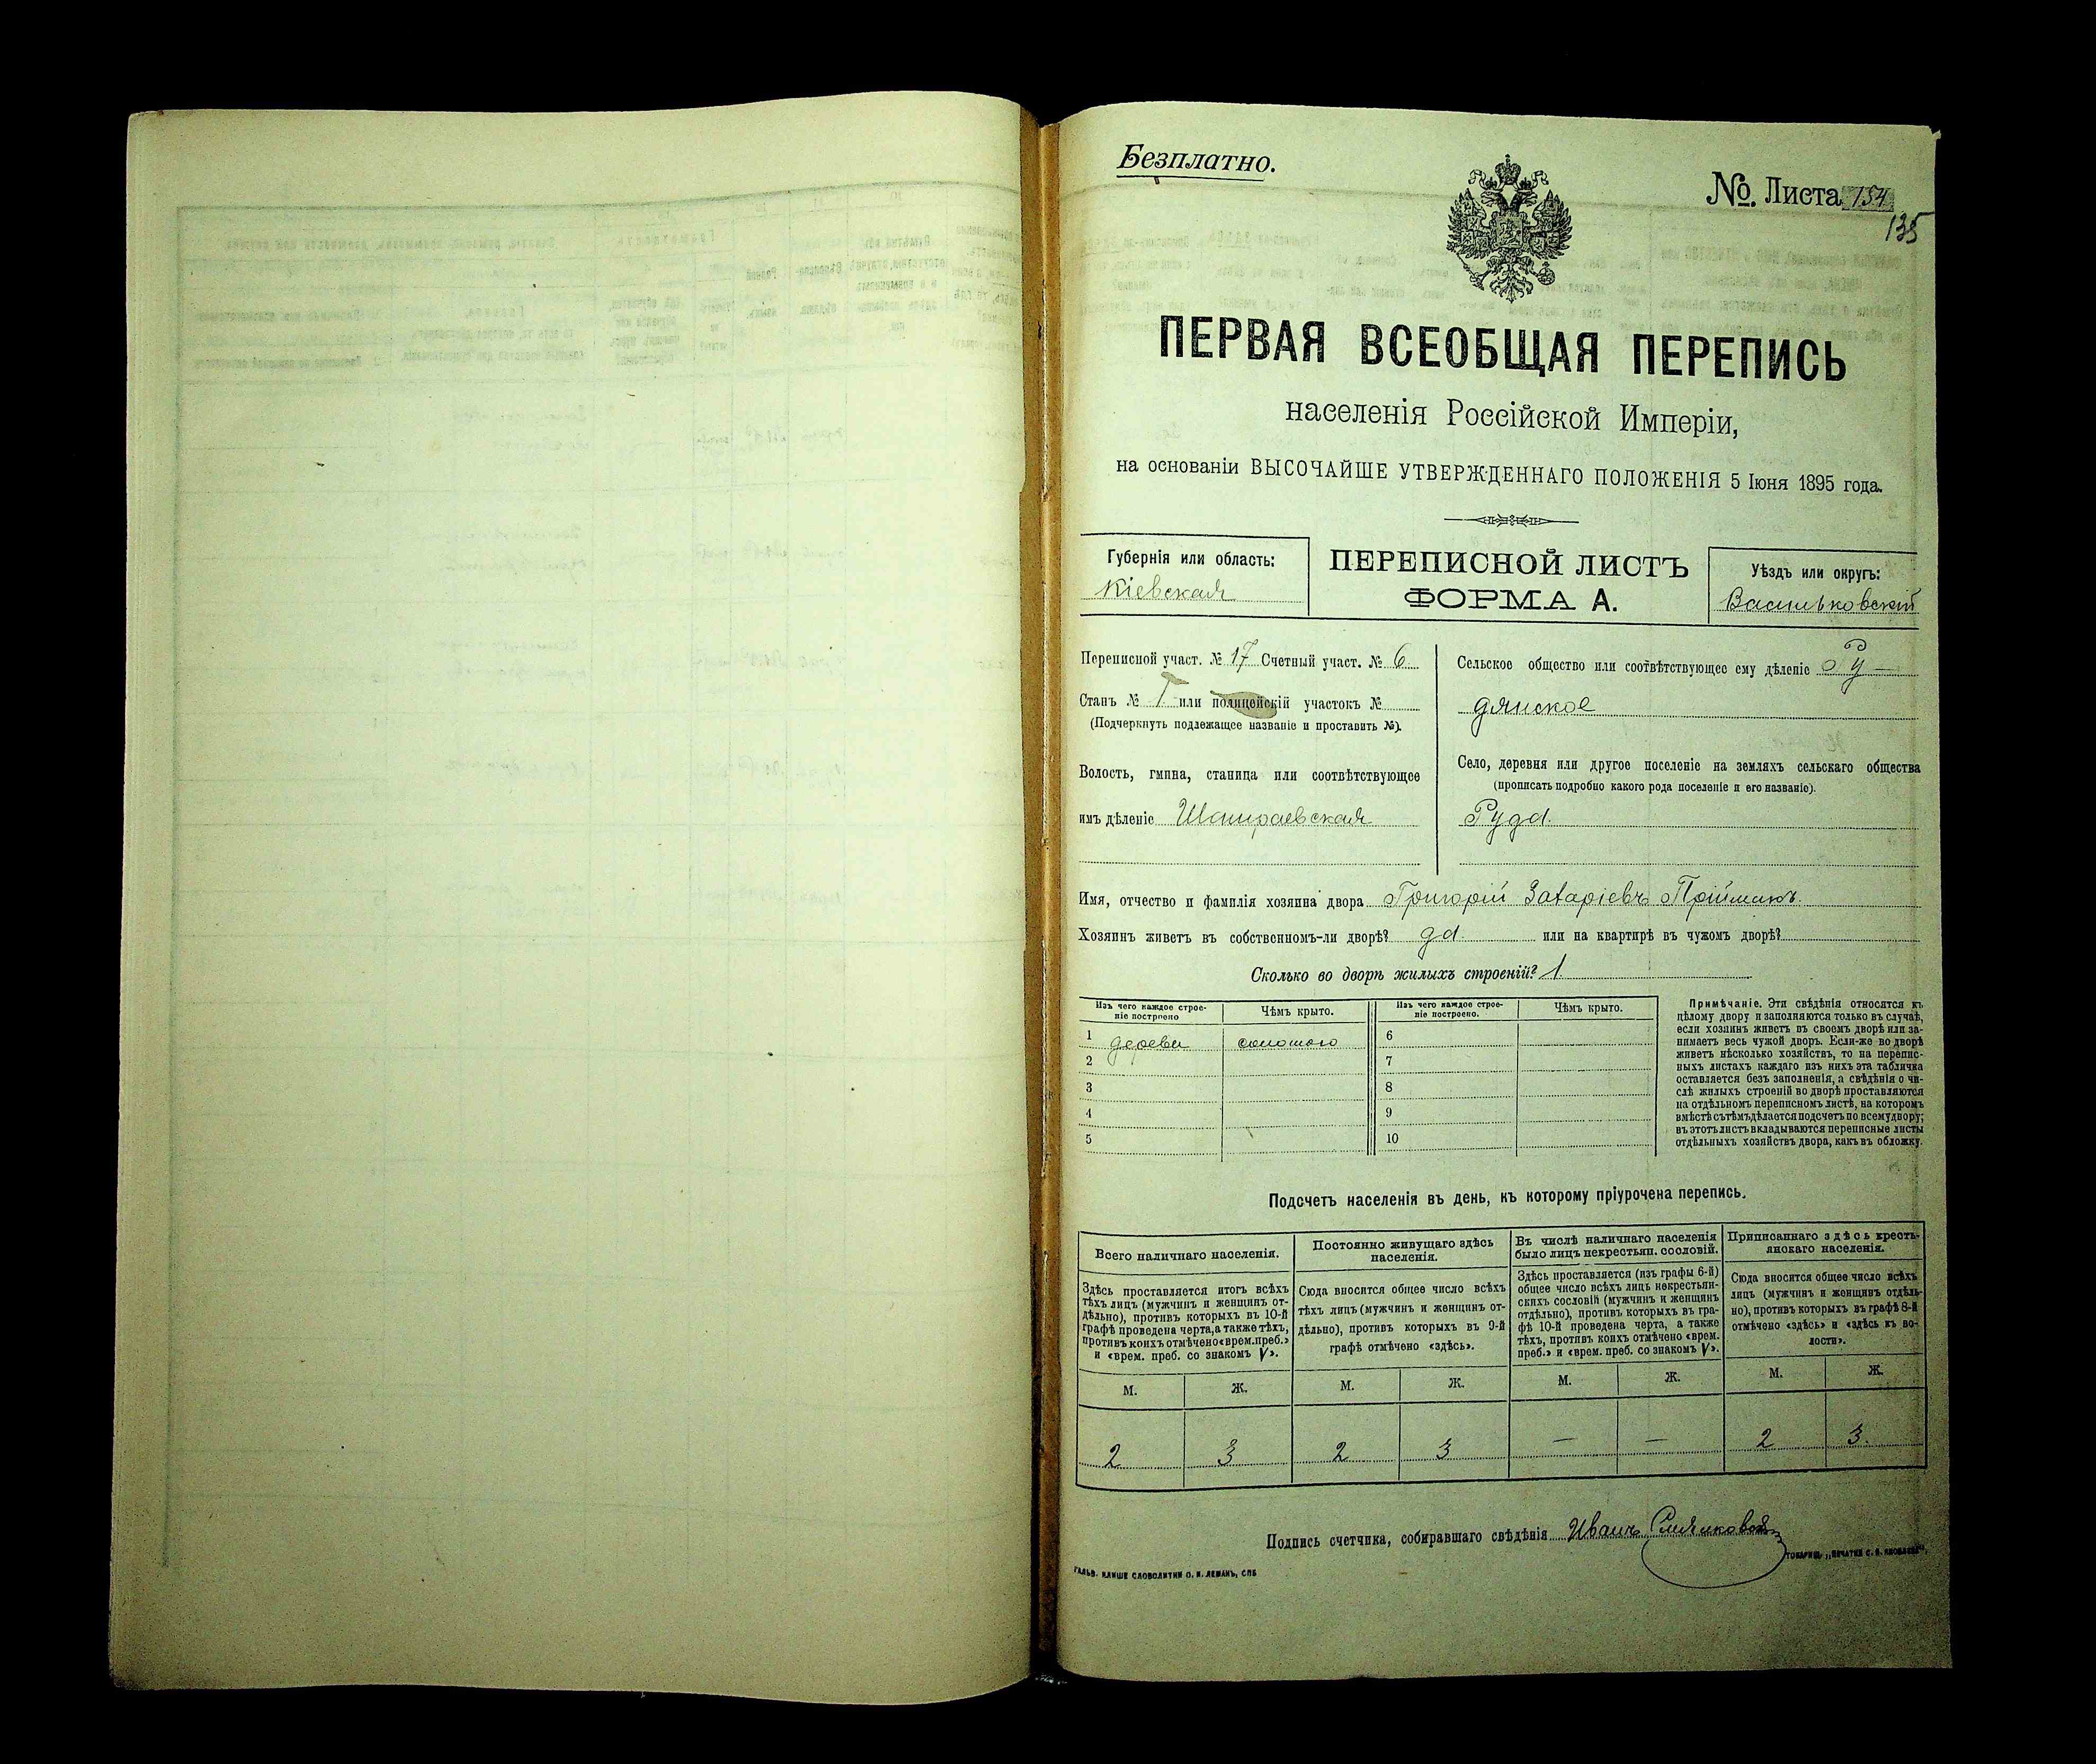 Безплатно.
№. Листа 154
135
ПЕРВАЯ ВСЕОБЩАЯ ПЕРЕПИСЬ
населенія Россійской Имперіи,
на основаніи ВЫСОЧАЙШЕ УТВЕРЖДЕННАГО ПОЛОЖЕНІЯ 5 Іюня 1895 года.
Губернія или область:
Кіевская
ПЕРЕПИСНОЙ ЛИСТЪ
ФОРМА А.
Уѣздъ или округъ:
Васильковскій
Переписной участ. № 17 Счетный участ. № 6.
Станъ № I или полицейскій участокъ №
(Подчеркнуть подлежащее названіе и проставить №).
Волость, гмина, станица или соотвѣтствующее
имъ дѣленіе Шамраевская
Сельское общество или соотвѣтствующее ему дѣленіе Ру-
дянское
Село, деревня или другое поселеніе на земляхъ сельскаго общества
(прописать подробно какого рода поселеніе и его названіе).
Руда.
Имя, отчество и фамилія хозяина двора Григорій Захаріевъ Пріймакъ.
Хозяинъ живетъ въ собственномъ-ли дворѣ? да. или на квартирѣ въ чужомъ дворѣ?
Сколько во дворѣ жилыхъ строеній? 1.
Изъ чего каждое строе-
ніе построено
Чѣмъ крыто.
Изъ чего каждое строе-
ніе построено.
Чѣмъ крыто.
1 дерева соломою 6
2 7
3 8
4 9
5 10
Примѣчаніе. Эти свѣдѣнія относятся къ
цѣлому двору и заполняются только въ случаѣ,
если хозяинъ живетъ въ своемъ дворѣ или за-
нимаетъ весь чужой дворъ. Если-же во дворѣ
живетъ нѣсколько хозяйствъ, то на перепис-
ныхъ листахъ каждаго изъ нихъ эта табличка
оставляется безъ заполненія, а свѣдѣнія о чи-
слѣ жилыхъ строеній во дворѣ проставляются
на отдѣльномъ переписномъ листѣ, на которомъ
вмѣстѣ съ тѣмъ дѣлается подсчетъ по всему двору;
въ этотъ листъ вкладываются переписные листы
отдѣльныхъ хозяйствъ двора, какъ въ обложку.
Подсчетъ населенія въ день, къ которому пріурочена перепись.
Всего наличнаго населенія.
Здѣсь проставляется итогъ всѣхъ
тѣхъ лицъ (мужчинъ и женщинъ от-
дѣльно), противъ которыхъ въ 10-й
графѣ проведена черта, а также тѣхъ,
противъ коихъ отмѣчено «врем. преб.»
и «врем. преб. со знакомъ V».
Постоянно живущаго здѣсь
населенія.
Сюда вносится общее число всѣхъ
тѣхъ лицъ (мужчинъ и женщинъ от-
дѣльно), противъ которыхъ въ 9-й
графѣ отмѣчено «здѣсь».
Въ числѣ наличнаго населенія
было лицъ некрестьян. сословій.
Здѣсь проставляется (изъ графы 6-й)
общее число всѣхъ лицъ некрестьян-
скихъ сословій (мужчинъ и женщинъ
отдѣльно), противъ которыхъ въ гра-
фѣ 10-й проведена черта, а также
тѣхъ, противъ коихъ отмѣчено «врем.
преб.» и «врем. преб. со знакомъ V».
Приписаннаго здѣсь кресть-
янскаго населенія.
Сюда вносится общее число всѣхъ
лицъ (мужчинъ и женщинъ отдѣль-
но), противъ которыхъ въ графѣ 8-й
отмѣчено «здѣсь» и «здѣсь въ во-
лости».
М. Ж. М. Ж. М. Ж. М. Ж.
2 3 2 3 — — 2 3.
Подпись счетчика, собиравшаго свѣдѣнія Иванъ
ГАЛЬВ. КЛИШЕ СЛОВОЛИТНИ О. И. ЛЕМАНЪ, СПБ
ТОВАРИЩ. „ПЕЧАТНЯ С. П. ЯКОВЛЕВА“.